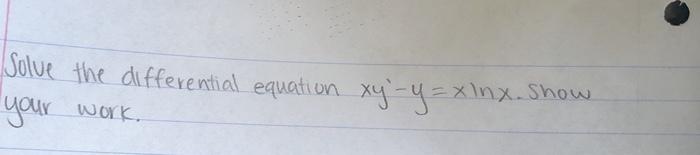 Solve the differential equation xy'-y=xlnx. Show
your work.